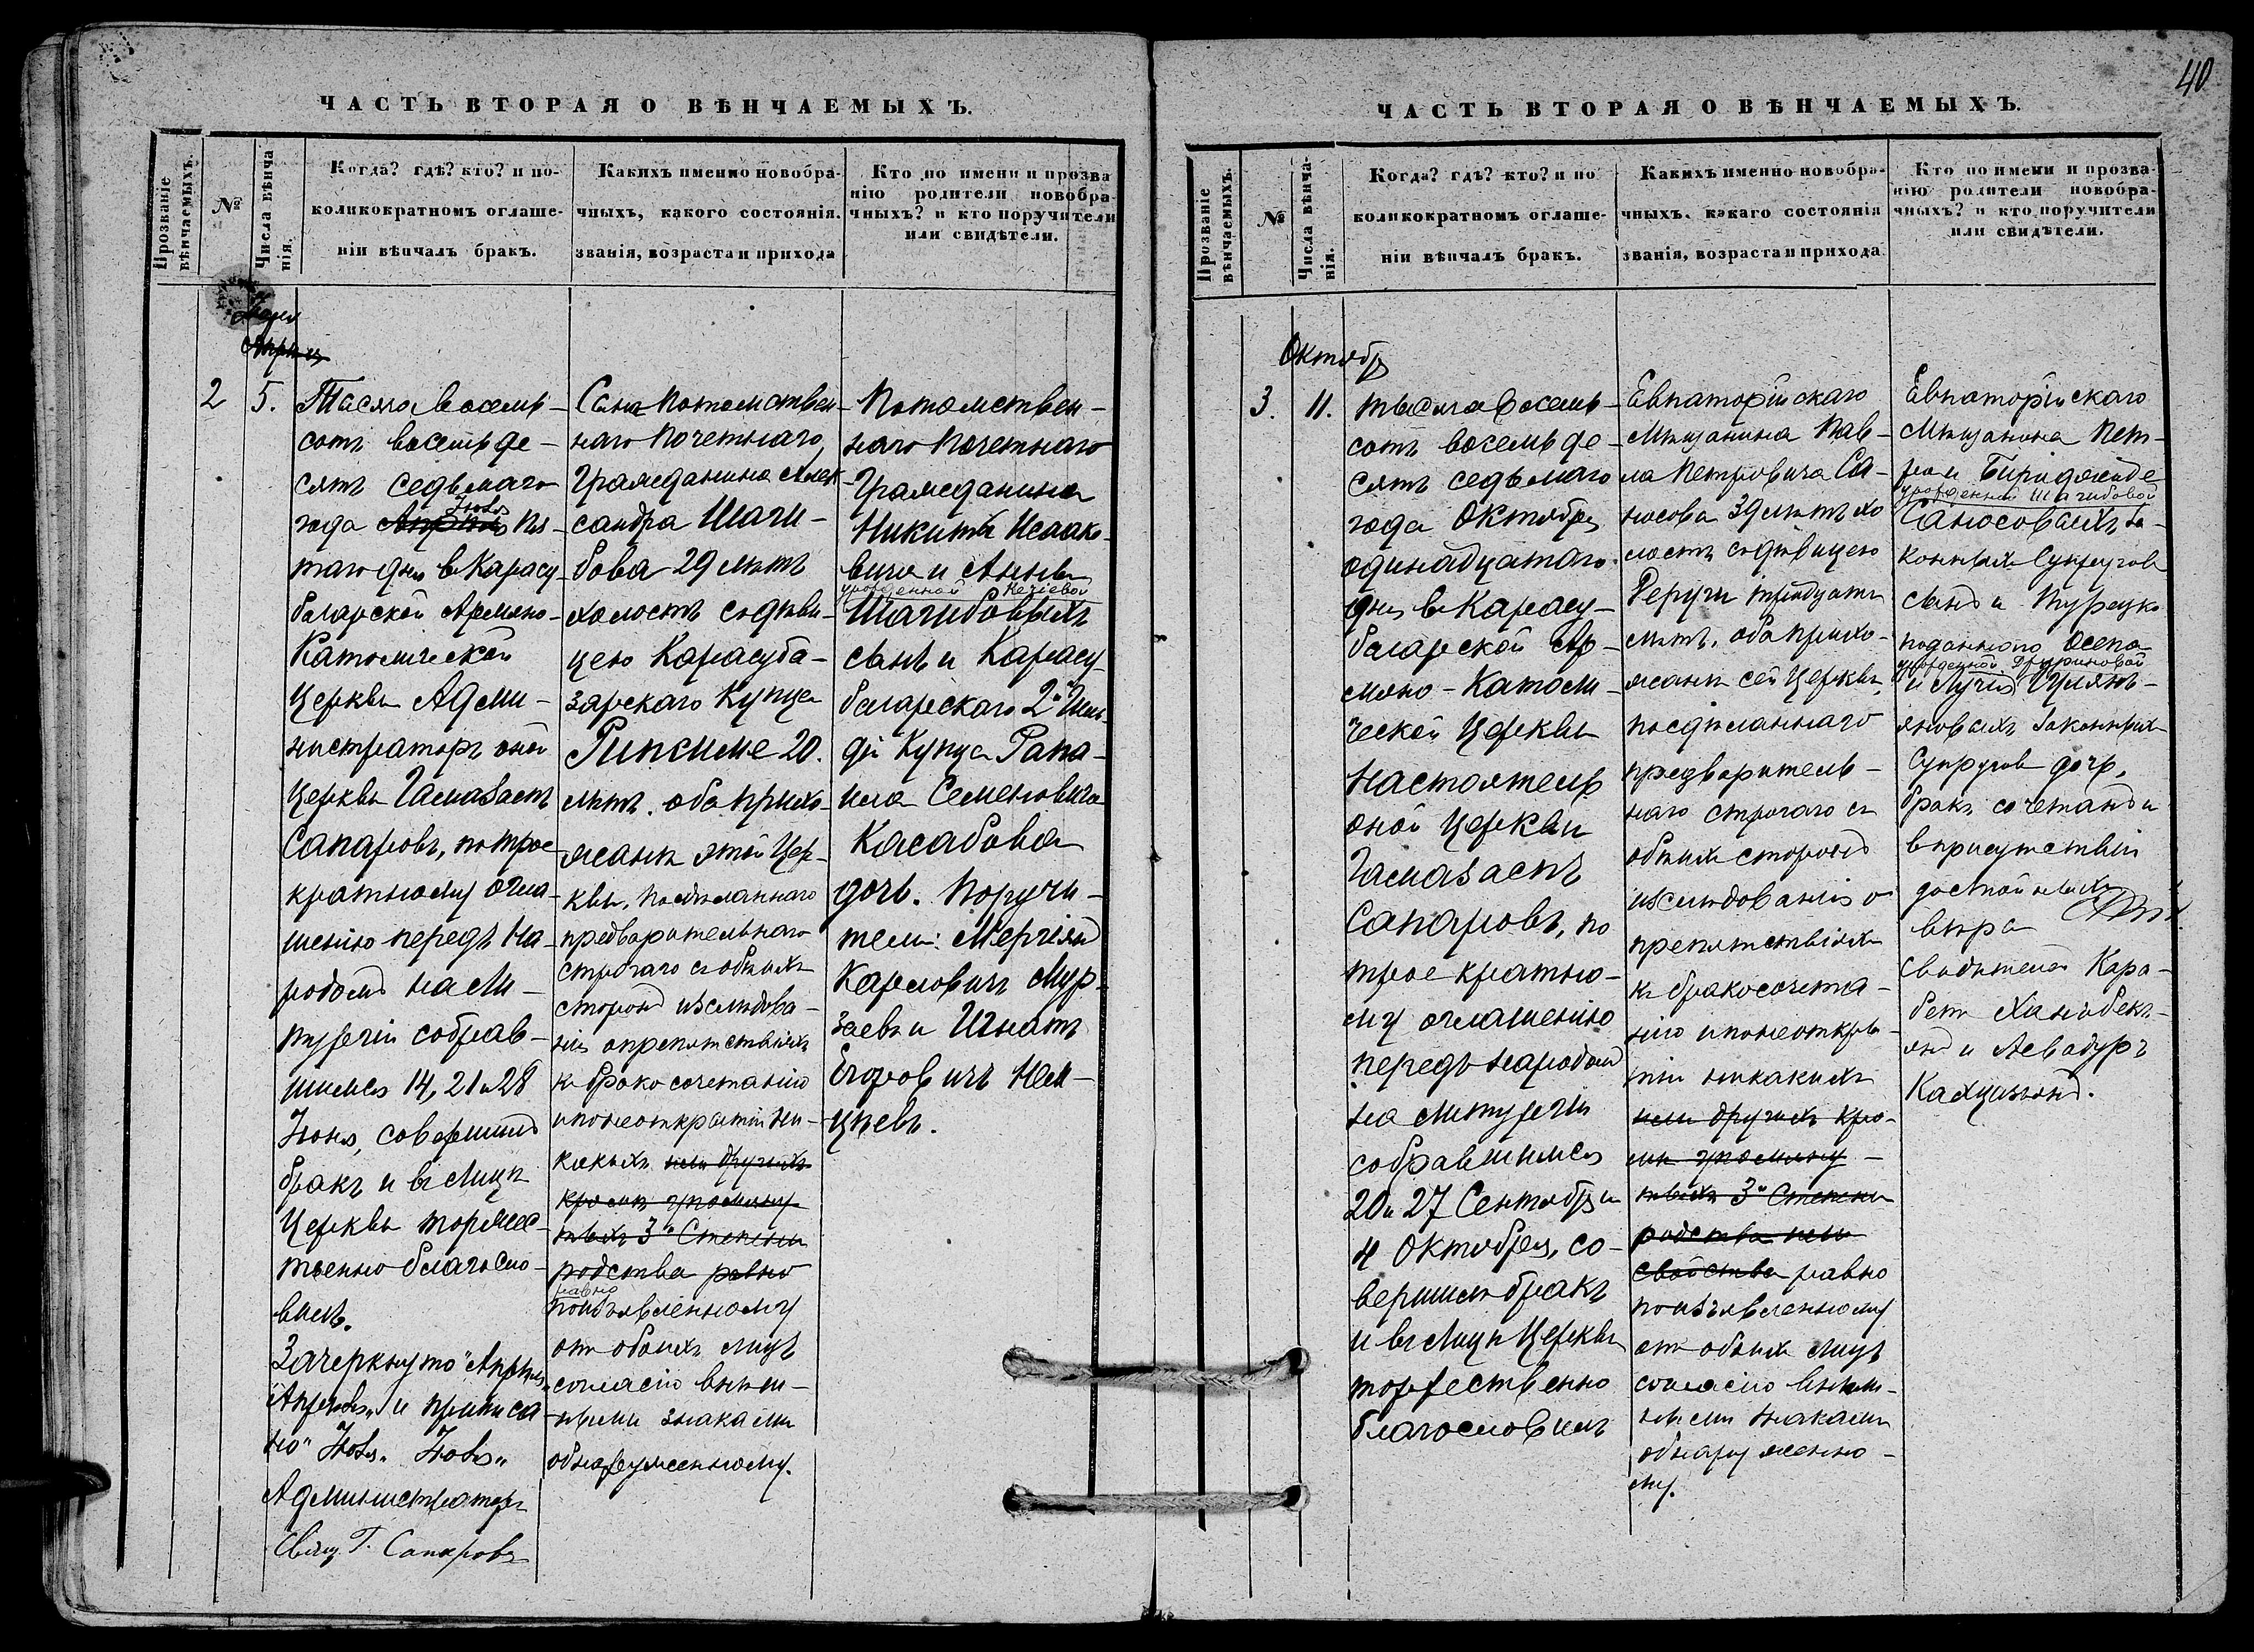 40
ЧАСТЬ ВТОРАЯ О ВѢНЧАЕМЫХЪ.
Прозваніе вѣнчаемыхъ.
№
Числа вѣнча
нія.
Когда? гдѣ? кто? и по-
коликократномъ оглаше-
ніи вѣнчалъ бракъ.
Какихъ именно новобра-
чныхъ, какого состоянія.
званія, возраста и прихода
Кто по имени и прозва
нію родители новобра-
чныхъ? и кто поручители
или свидѣтели.
2
5.
Тысяча восемь-
сотъ восемьде-
сятъ седьмаго
Іюля
года Апрѣля пя-
таго дня въ Карасу-
базарской Армяно-
Католической
Церкви Адми-
нистраторъ оной
Церкви Гамазаспъ
Сапаровъ, по трое
кратному огла-
шенію передъ На-
родомъ на Ли-
тургіи собрав-
шимся 14, 21 и 28
Іюня, совершилъ
бракъ и въ Лицѣ
Церкви торжес-
твенно благосло-
вилъ.
Зачеркнуто "Апрѣля"
"Апрѣля" и приписа
но "Іюля" "Іюля"
Администраторъ
Свящ. Г. Сапаровъ
Сына Потомствен-
наго Почетнаго
Гражданина Алек
сандра Шаги-
бова 29 лѣтъ
холостъ съ дѣви-
цею Карасуба-
зарскаго Купца
Рипсиме 20.
лѣтъ. оба прихо-
жане этой Цер-
кви, по сдѣланнаго
предварительнаго
строгаго съ обѣихъ
сторонъ изслѣдова-
нія о препятствіяхъ
къ бракосочетанію
и по неоткрытіи ни-
какихъ или другихъ
кромѣ упомяну-
тыхъ 3й Степени
родства равно
равно
по изъявленному
отъ обоихъ лицъ
согласію внѣш-
ными знаками
обнаруженному.
Потомствен-
наго Почетнаго
Гражданина
Никиты Исаако-
вича и Анны
урожденной Кечіевой
Шагибовыхъ
сынъ и Карасу-
базарскаго 2й Гиль-
діи Купца Рапа-
ила Семеновича
Касабова
дочь. Поручи-
тели: Мергіянъ
Карповичъ Мур-
заевъ и Игнатъ
Егоровичъ Нем-
цевъ.
ЧАСТЬ ВТОРАЯ О ВѢНЧАЕМЫХЪ.
Прозваніе вѣнчаемыхъ.
№
Числа вѣнча-
нія.
Когда? гдѣ? кто? и по
коликократномъ оглаше-
ніи вѣнчалъ бракъ.
Какихъ именно новобра-
чныхъ. какаго состоянія
званія, возраста и прихода
Кто по имени и прозва-
нію родители новобра-
чныхъ? и кто поручители
или свидѣтели.
Октябр
3.
11.
тысяча восемь-
сотъ восемьде-
сятъ седьмаго
года Октября
одинадцатаго
дня въ Карасу-
базарской Ар-
мяно-Католи-
ческой Церкви
Настоятель
оной Церкви
Гамазаспъ
Сапаровъ, по
троекратно-
му оглашенію
передъ народомъ
на литургіи
собравшимся
20 и 27 Сентября и
4 Октября, со-
вершилъ бракъ
и въ Лицѣ Церкви
торжественно
благословилъ
Евпаторійскаго
Мѣщанина Пав-
ла Петровича Са-
носова 39 лѣтъ хо
лостъ съ дѣвицею
Реруги тридцать
лѣтъ. оба прихо-
жане сей Церкви,
по сдѣланнаго
предваритель-
наго строгаго съ
обѣихъ сторонъ
изслѣдованія о
препятствіяхъ
къ бракосочета-
нію и по неоткры-
тіи никакихъ
или другихъ кро-
мѣ упомяну-
тыхъ 3й Степени
родства или
свойства равно
по изъявленному
отъ обѣихъ лицъ
согласію внѣш-
ными знаками
обнаруженно-
му.
Евпаторійскаго
Мѣщанина Пет-
урожденной Шагибовой
Саносовыхъ за-
конныхъ Супруговъ
сынъ и Турецко
поданнаго Осепа
законныхъ
Супруговъ дочь,
бракъ сочетанъ
въ присутствіи
достойныхъ
вѣра
Свидѣтелей Кара-
бетъ Ханыбекъ-
янъ и Асвадуръ